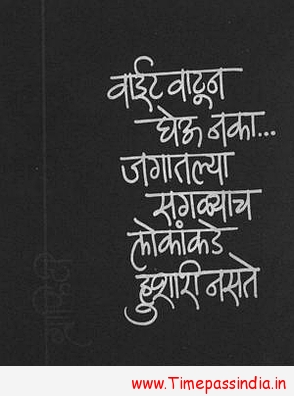 वाईट वाटून
घेऊ नका...
जगातल्या
सगळ्याच
लोकांकडे
हुशारी नसते
www.Timepassindia.in